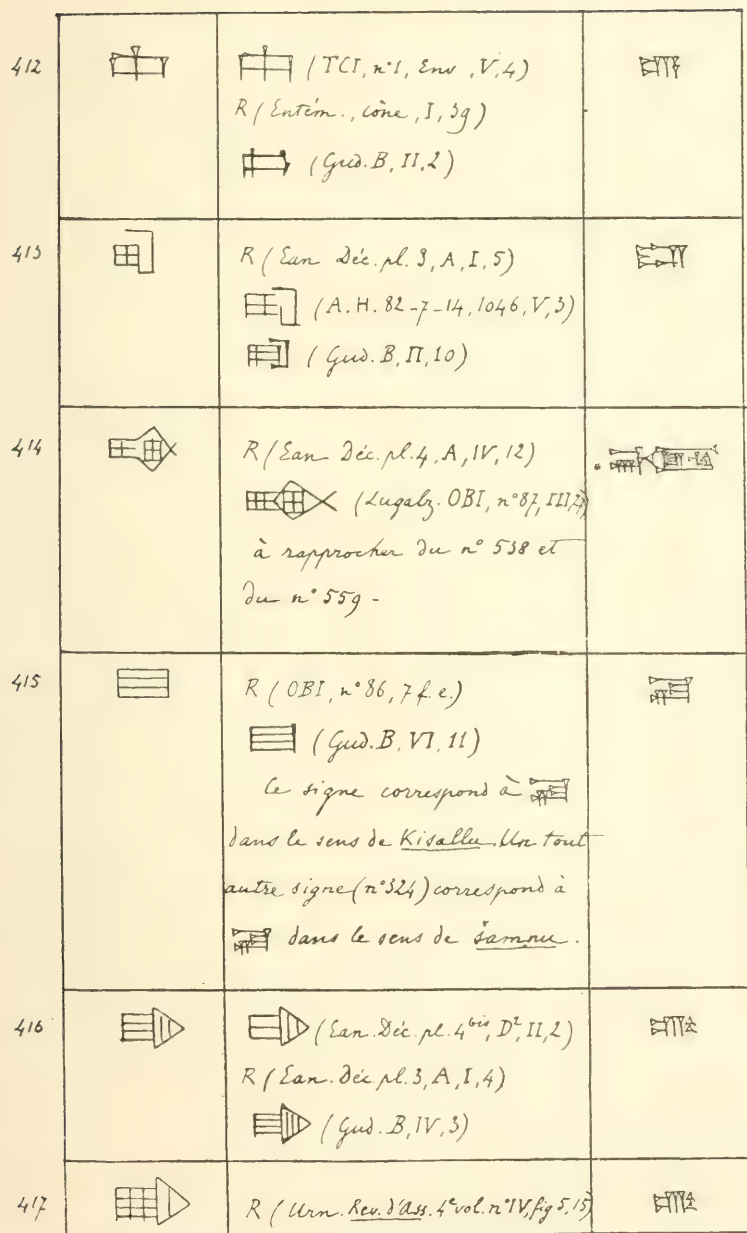 412 (TCI, n°1, Env, V, 4)
R (Entém., cône, I, 39)
(Gud. B, II, 2)
413 R (Ean. Déc. pl. 3, A, I, 5)
(A.H. 82-7-14, 1046, V, 3)
(Gud. B, II, 10)
414 R (Ean. Déc. pl. 4, A, IV, 12)
(Lugalz. OBI, n°87, III,
à rapprocher du n° 538 et
du n° 559 -
415 R (OBI, n°86, 7 f. e.)
(Gud. B, VI, 11)
Ce signe correspond à
dans le sens de Kisallu. Un tout
autre signe (n°324) correspond à
dans le sens de šamnu.
416 (Ean. Déc. pl. 4bis, D², II, 2)
R (Ean. Déc. pl. 3, A, I, 4)
(Gud. B, IV, 3)
417 R (Urn. Rev. d'Ass. 4e vol. n°IV, fig 5, 15)